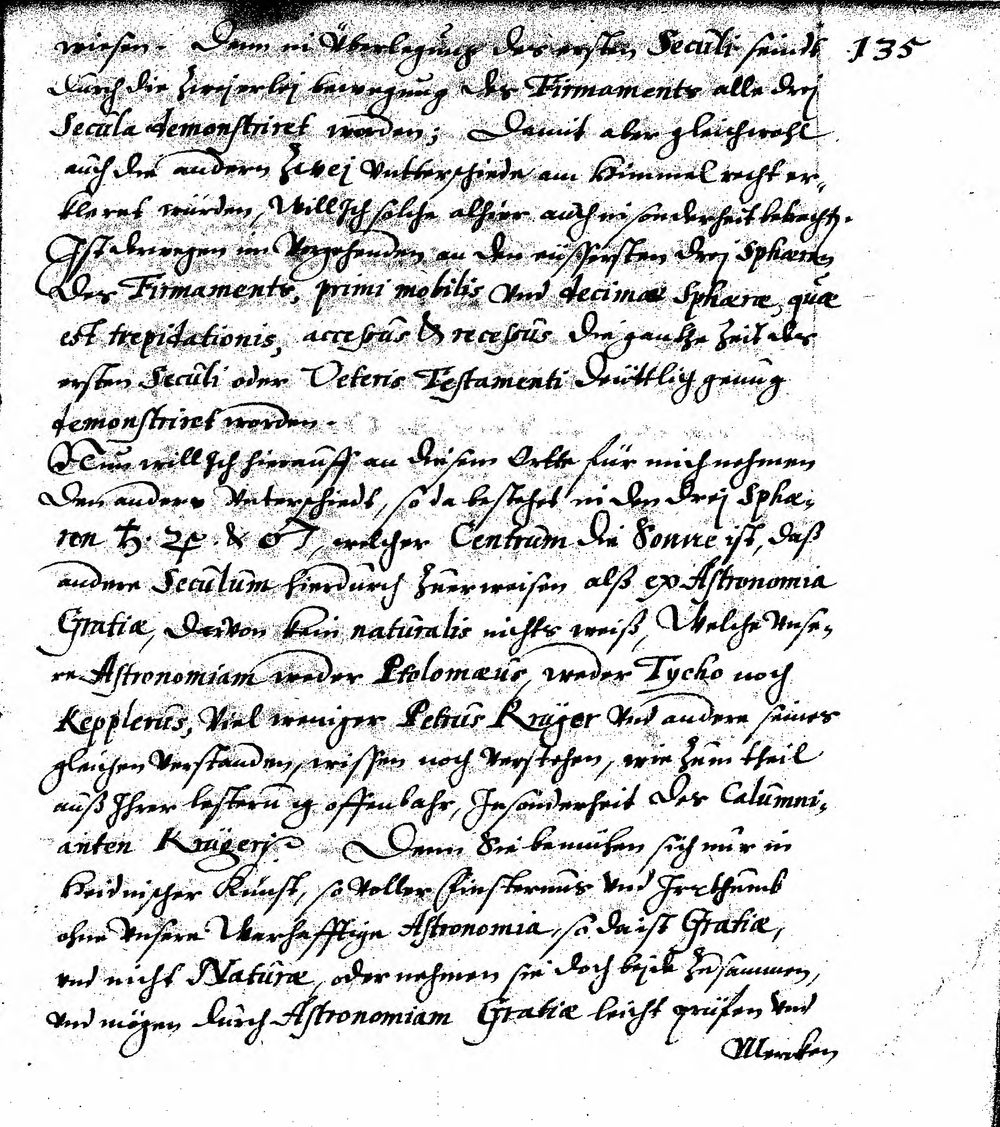 wiesen. Denn in Überlegung des ersten Seculi seindt 135
durch die zweyerley bewegung des Firmaments alle drej
Secula demonstriret worden; Damit aber gleichwohl
auch die andern zwej Vntterschiede am Himmel recht er-
kleret würden, Will Ich solche alhier auch in sonderheit betracht.
Ist derwegen im Vorgehenden an den eüssersten drej Sphæren
des Firmaments, primi mobilis Vnd decimæ Sphæræ, quæ
est trepidationis, accessus & recessus die gantze Zeit des
ersten Seculi oder Veteris Testamenti deüttlich genug
demonstriret worden.
Nun will Ich hierauff an diesem Ortte für mich nehmen
den andern Vnterschiedt, so da bestehet in den drej Sphæ-
ren ♄. ♃. & ♂, welcher Centrum die Sonne ist, daß
andere Seculum hierdurch zuerweisen alß ex Astronomia
Gratiæ, darvon kein naturalis nichts weiß, Welche Vnse-
re Astronomiam weder Ptolomæus, weder Tycho noch
Kepplerus, Viel weniger Petrus Krüger Vnd andere seines
gleichen Verstanden, wissen noch Verstehen, wie zum theil
auß Ihrer lesterung offenbahr, Insonderheit des Calumni-
anten Krügerj. Denn Sie bemühen sich nur in
Heidnischer Kunst, so Voller Finsternus Vnd Irrthumb
ohne Vnsere Warhafftige Astronomia, so da ist Gratiæ,
vnd nicht Naturæ, oder nehmen sie doch bejde zusammen,
Vnd mögen durch Astronomiam Gratiæ leicht prüfen Vnd
Mercken